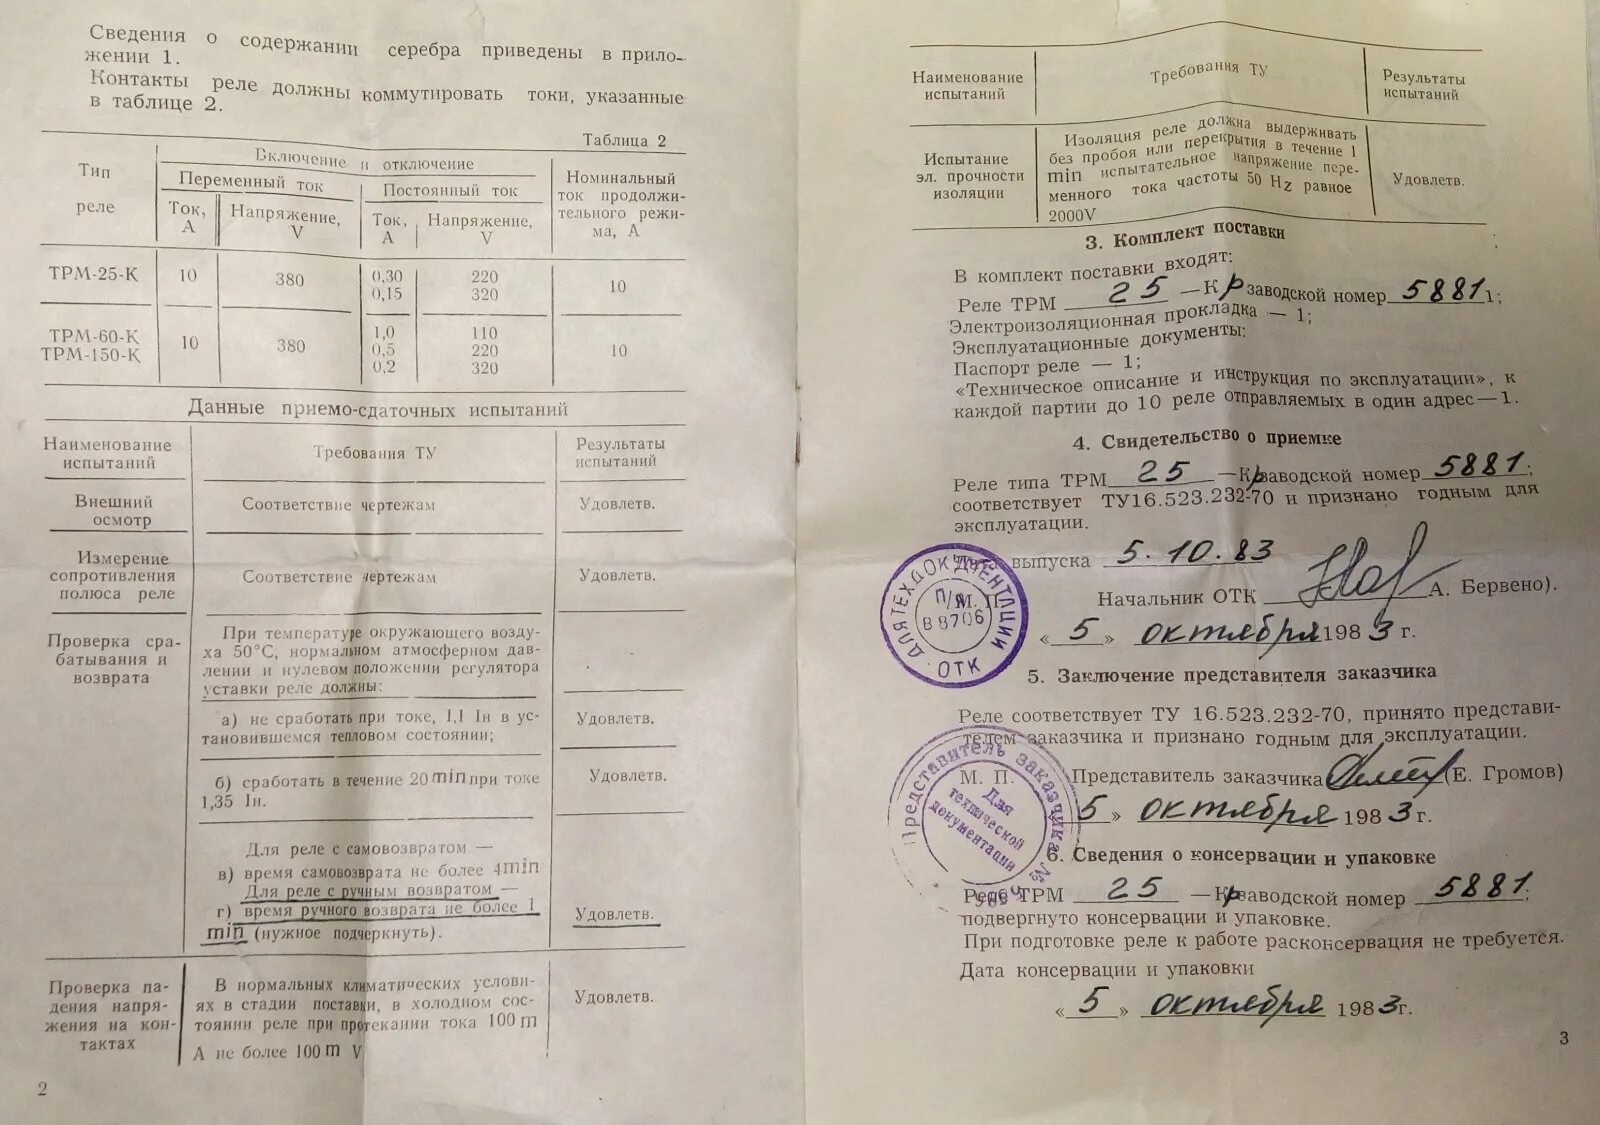 Сведения о содержании серебра приведены в прило-
жении 1.
Контакты реле должны коммутировать токи, указанные
в таблице 2.
Таблица 2
Тип реле
Включение и отключение
Номинальный ток продолжи-тельного режи-ма, А
Переменный ток
Постоянный ток
Ток, А
Напряжение, V
Ток, А
Напряжение, V
ТРМ-25-К 10 380 0,30 220 10
0,15 320
ТРМ-60-К 10 380 1,0 110 10
ТРМ-150-К 0,5 220
0,2 320
Данные приемо-сдаточных испытаний
Наименование испытаний
Требования ТУ
Результаты испытаний
Внешний осмотр
Соответствие чертежам
Удовлетв.
Измерение
сопротивления
полюса реле
Соответствие чертежам
Удовлетв.
Проверка сра-
батывания и
возврата
При температуре окружающего возду-
ха 50°С, нормальном атмосферном дав-
лении и нулевом положении регулятора
уставки реле должны:
а) не сработать при токе, 1,1 Iн в ус-
тановившемся тепловом состоянии;
Удовлетв.
б) сработать в течение 20 min при токе
1,35 Iн.
Удовлетв.
Для реле с самовозвратом —
в) время самовозврата не более 4 min
Для реле с ручным возвратом —
г) время ручного возврата не более 1
min (нужное подчеркнуть).
Удовлетв.
Проверка па-
дения напря-
жения на кон-
тактах
В нормальных климатических услови-
ях в стадии поставки, в холодном сос-
тоянии реле при протекании тока 100 m
А не более 100 m V
Удовлетв.
2
Наименование испытаний
Требования ТУ
Результаты испытаний
Испытание
эл. прочности
изоляции
Изоляция реле должна выдерживать
без пробоя или перекрытия в течение 1
min испытательное напряжение пере-
менного тока частоты 50 Hz равное
2000V
Удовлетв.
3. Комплект поставки
В комплект поставки входят:
Реле ТРМ 25 —Кр заводской номер 5881 1;
Электроизоляционная прокладка — 1;
Эксплуатационные документы:
Паспорт реле — 1;
«Техническое описание и инструкция по эксплуатации», к
каждой партии до 10 реле отправляемых в один адрес—1.
4. Свидетельство о приемке
Реле типа ТРМ 25 —Кр заводской номер 5881;
соответствует ТУ16.523.232-70 и признано годным для
эксплуатации.
Дата выпуска 5.10.83
М. П.
Начальник ОТК А. Бервено).
«5» октября 1983 г.
ДЛЯ ТЕХДОКУМЕНТАЦИИ
П/Я
В 8706
ОТК
5. Заключение представителя заказчика
Реле соответствует ТУ 16.523.232-70, принято представи-
телем заказчика и признано годным для эксплуатации.
М. П. Представитель заказчика (Е. Громов)
5» октября 1983 г.
Представитель заказчика №
Для
технической
документации
6. Сведения о консервации и упаковке
Реле ТРМ 25 —Кр заводской номер 5881;
подвергнуто консервации и упаковке.
При подготовке реле к работе расконсервация не требуется.
Дата консервации и упаковки
«5» октября 1983г.
3